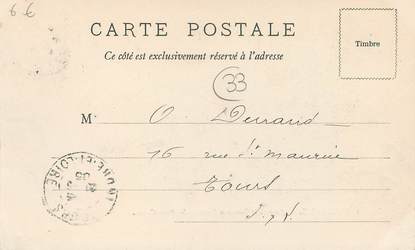 6 €
CARTE POSTALE
Ce côté est exclusivement réservé à l'adresse
Timbre
33
M O. Durand
16 rue St Maurice
Tours
I & L
TOURS INDRE-ET-LOIRE